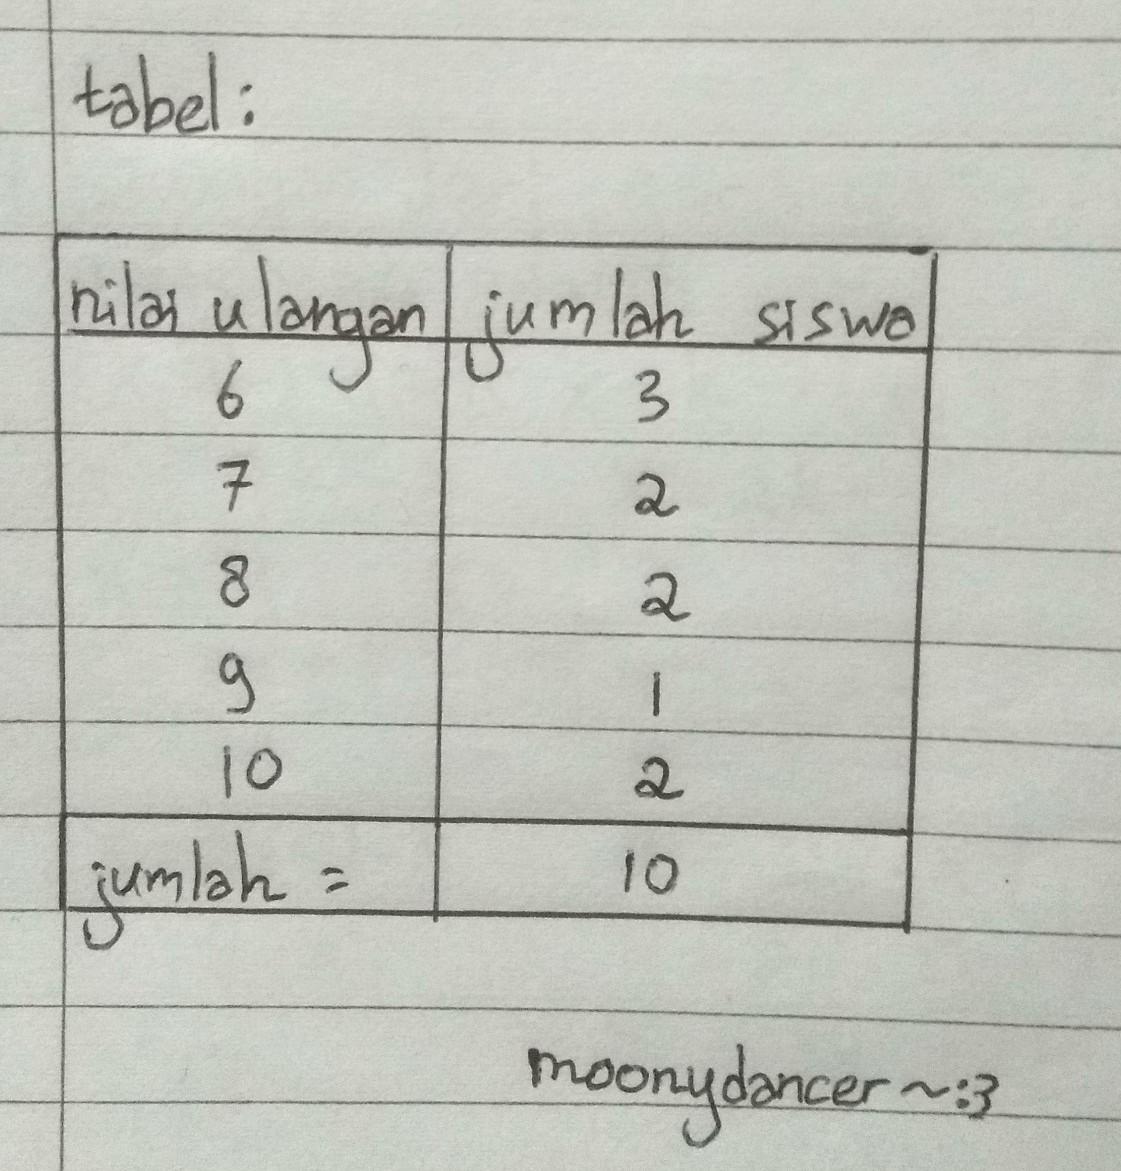 tabel:
nilai ulangan jumlah siswa
6 3
7 2
8 2
9 1
10 2
jumlah = 10
moonydancer ~:3